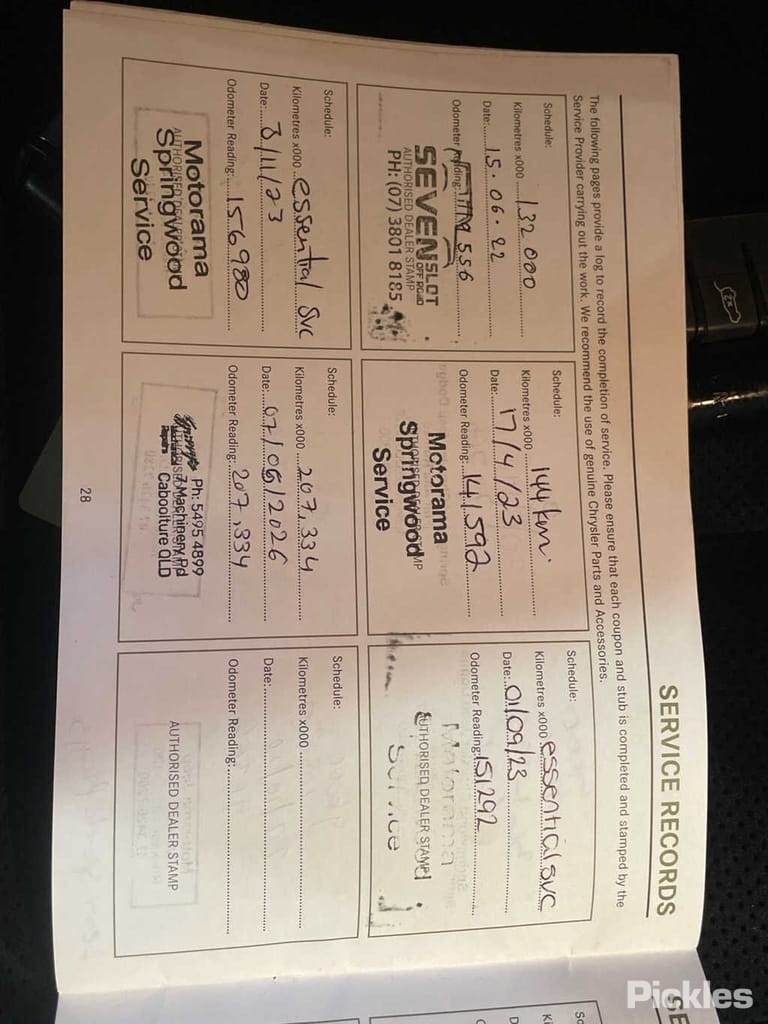 SERVICE RECORDS
The following pages provide a log to record the completion of service. Please ensure that each coupon and stub is completed and stamped by the
Service Provider carrying out the work. We recommend the use of genuine Chrysler Parts and Accessories.
Schedule:
Kilometres x000 132 000
Date: 15.06.22
Odometer
SEVENSLOT
OFF ROAD
AUTHORISED DEALER STAMP
PH: (07) 3801 8185
Schedule:
Kilometres x000 144 km.
Date: 17/4/23
Odometer Reading: 141,592
Motorama
Springwood
Service
Schedule:
Kilometres x000 essential svc
Date: 01/09/23
Odometer Reading: 151292
Motorama
AUTHORISED DEALER STAMP
Service
Schedule:
Kilometres x000 essential svc
Date: 3/11/23
Odometer Reading: 156980
Motorama
AUTHORISED DEALER STAMP
Springwood
Service
Schedule:
Kilometres x000 207,334
Date: 07/05/2026
Odometer Reading: 207,334
Ph: 5495 4899
7 Machinery Rd
Caboolture QLD
Schedule:
Kilometres x000
Date:
Odometer Reading:
AUTHORISED DEALER STAMP
28
SE
Pickles